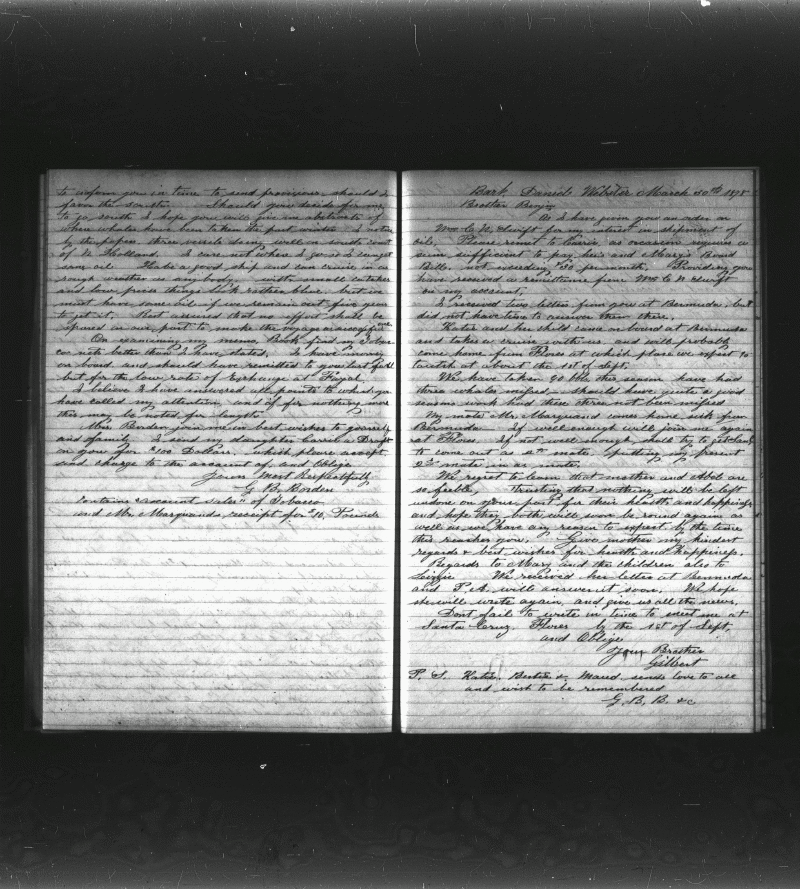 to inform you in time to send provisions should I
favor the south. Should you decide for me
to go south I hope you will give me abstracts of
where whales have been taken the past winter. I notice
by the papers three vessels doing well on south coast
of N Holland. I care not where I go so I can get
some oil. I have a good ship and can cruise in as
rough weather as any body. with small catches
and low prices things look rather blue, but we
must have some oil if we remain out five years
to get it. Rest assured that no effort shall be
spared on our part to make the voyage a successful one.
On examining my memo. Book find my I
no better than I have stated. I have money
on board and should have remitted to you last fall
but for the low rate of Exchange at Fayal.
I believe I have answered all points to which you
have called my attention and if for nothing more
this may be noted for length
Mrs. Borden join me in best wishes to yourself
and family. I send my daughter Carrie a Draft
on you for $100 Dollars, which please accept
and charge to the account of, and Oblige
Yours Most Respectfully
G. B. Borden
Contains account sales of Tobacco
and Mr. Marquands receipt for £10. Pounds
Bark Daniel Webster March 30th 1878
Brother Benj
As I have given you an order on
Wm C. N. Swift for my interest in shipment of
oil. Please remit to Carrie, as occasion requires a
sum sufficient to pay hers and Mary's Board
Bills, not exceeding $30 per month, Providing you
have received a remittance from Wm C N Swift
on my account.
I received two letters from you at Bermuda, but
did not have time to answer them there.
Katie and her child came on board at Bermuda
and takes a cruise with us, and will probably
come home from Flores at which place we expect to
touch at about the 1st of Sept.
We have taken 90 bbls this season have had
three whales mified. should have quite a good
seasons work had these three not been mified
My mate Mr. Marquand comes home sick from
Bermuda. If well enough will join me again
at Flores. If not well enough, shall try to get
to come out as 4th mate, putting my present
2nd mate in as mate.
We regret to learn that mother and Abel are
so feeble, Trusting that nothing will be left
undone on your part for their health and happiness
and hope they both will soon be round again as
well as we have any reason to expect by the time
this reaches you. Give mother my kindest
regards & best wishes for health and happiness.
Regards to Mary and the children also to
Lizzie We received her letters at Bermuda
and P. A. will answer it soon. We hope
she will write again, and give us all the news.
Dont fail to write in time to meet me at
Santa Cruz, Flores by the 1st of Sept,
and Oblige
Your Brother
Gilbert
P. S. Katie, Bertie & Maud sends love to all
and wish to be remembered
G. B. B. &c